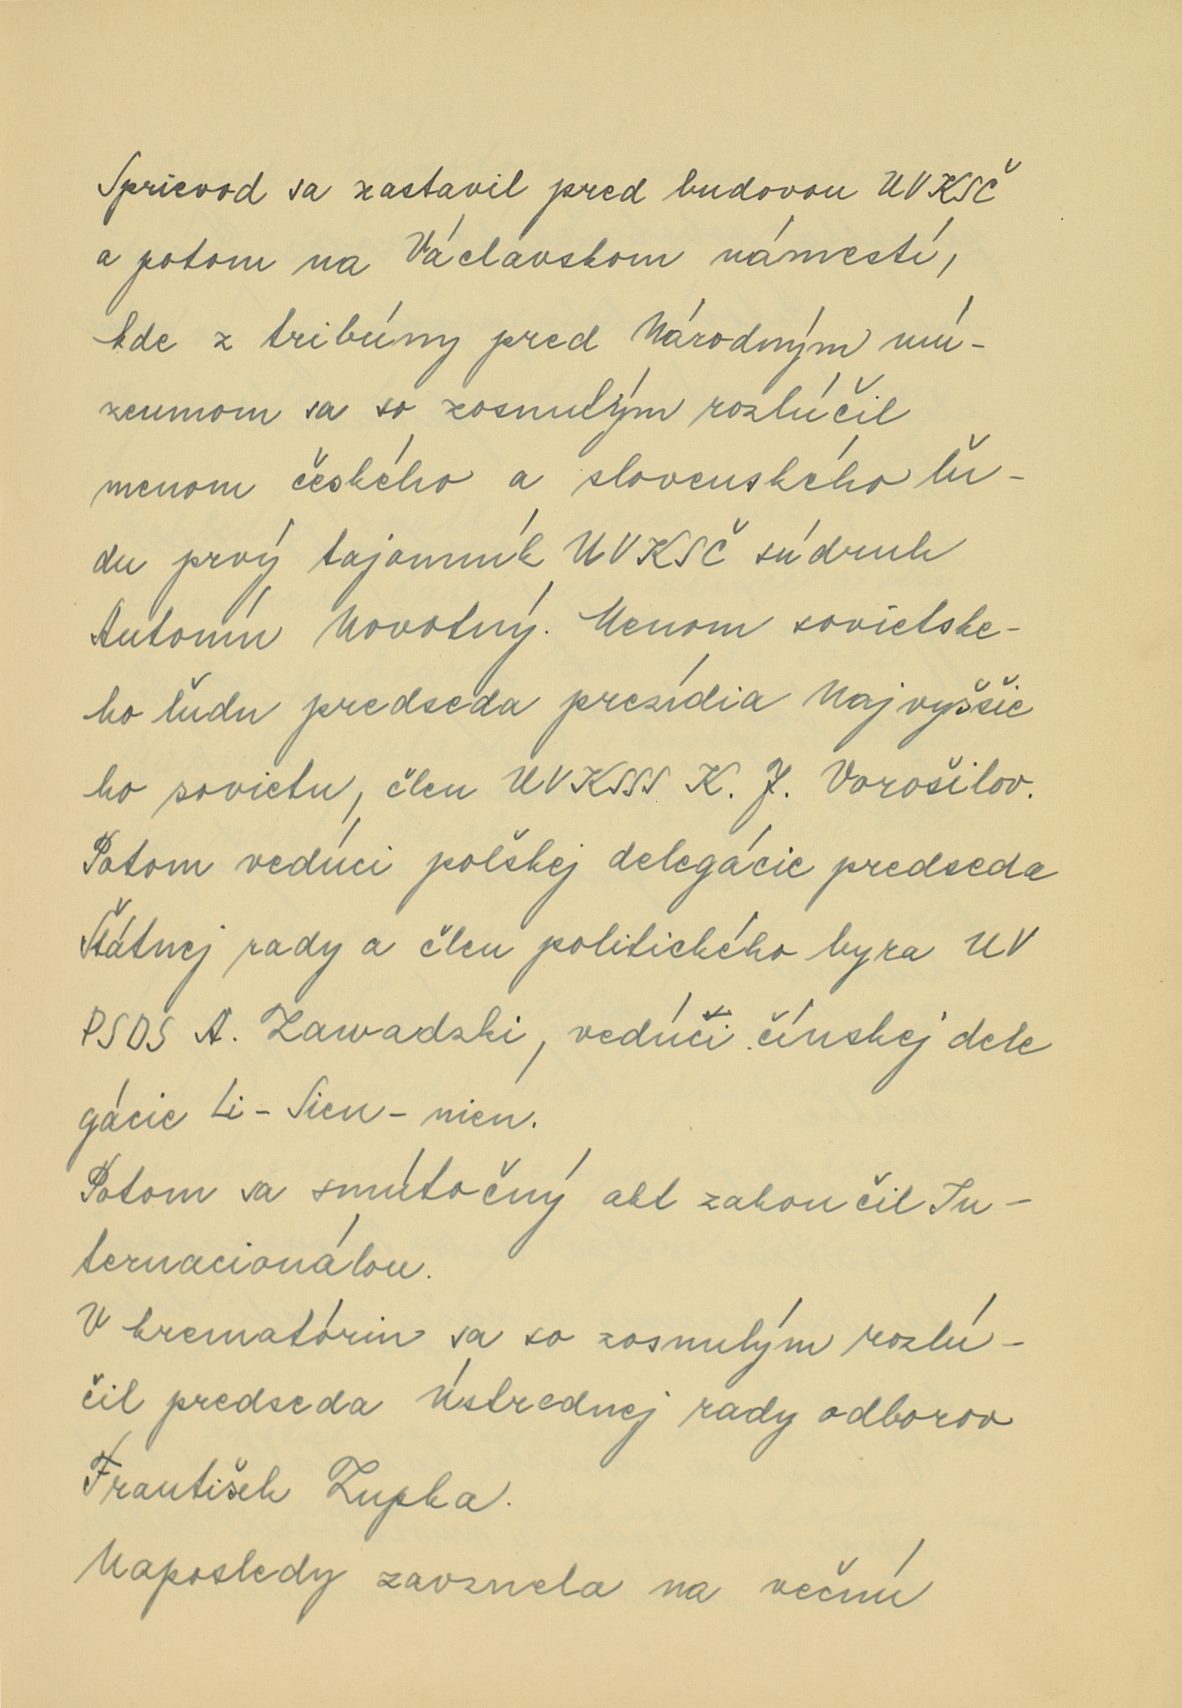 Sprievod sa zastavil pred budovou UVKSČ
a potom na Václavskom námestí,
kde z tribúny pred Národným mú-
zeumom sa so zosnulým rozlúčil
menom českého a slovenského ľu-
du prvý tajomník UVKSČ súdruh
Antonín Novotný. Menom sovietske-
ho ľudu predseda prezídia Najvyššie
ho sovietu, člen UVKSSS K. J. Vorošilov.
Potom vedúci poľskej delegácie predseda
Štátnej rady a člen politického byra UV
PSDS A. Zawadzki, vedúči čínskej dele
gácie Li - Sien - nien.
Potom sa smútočný akt zakončil In-
ternacionálou.
V krematóriu sa so zosnulým rozlú-
čil predseda Ústrednej rady odborov
František Zupka.
Naposledy zavznela na večnú